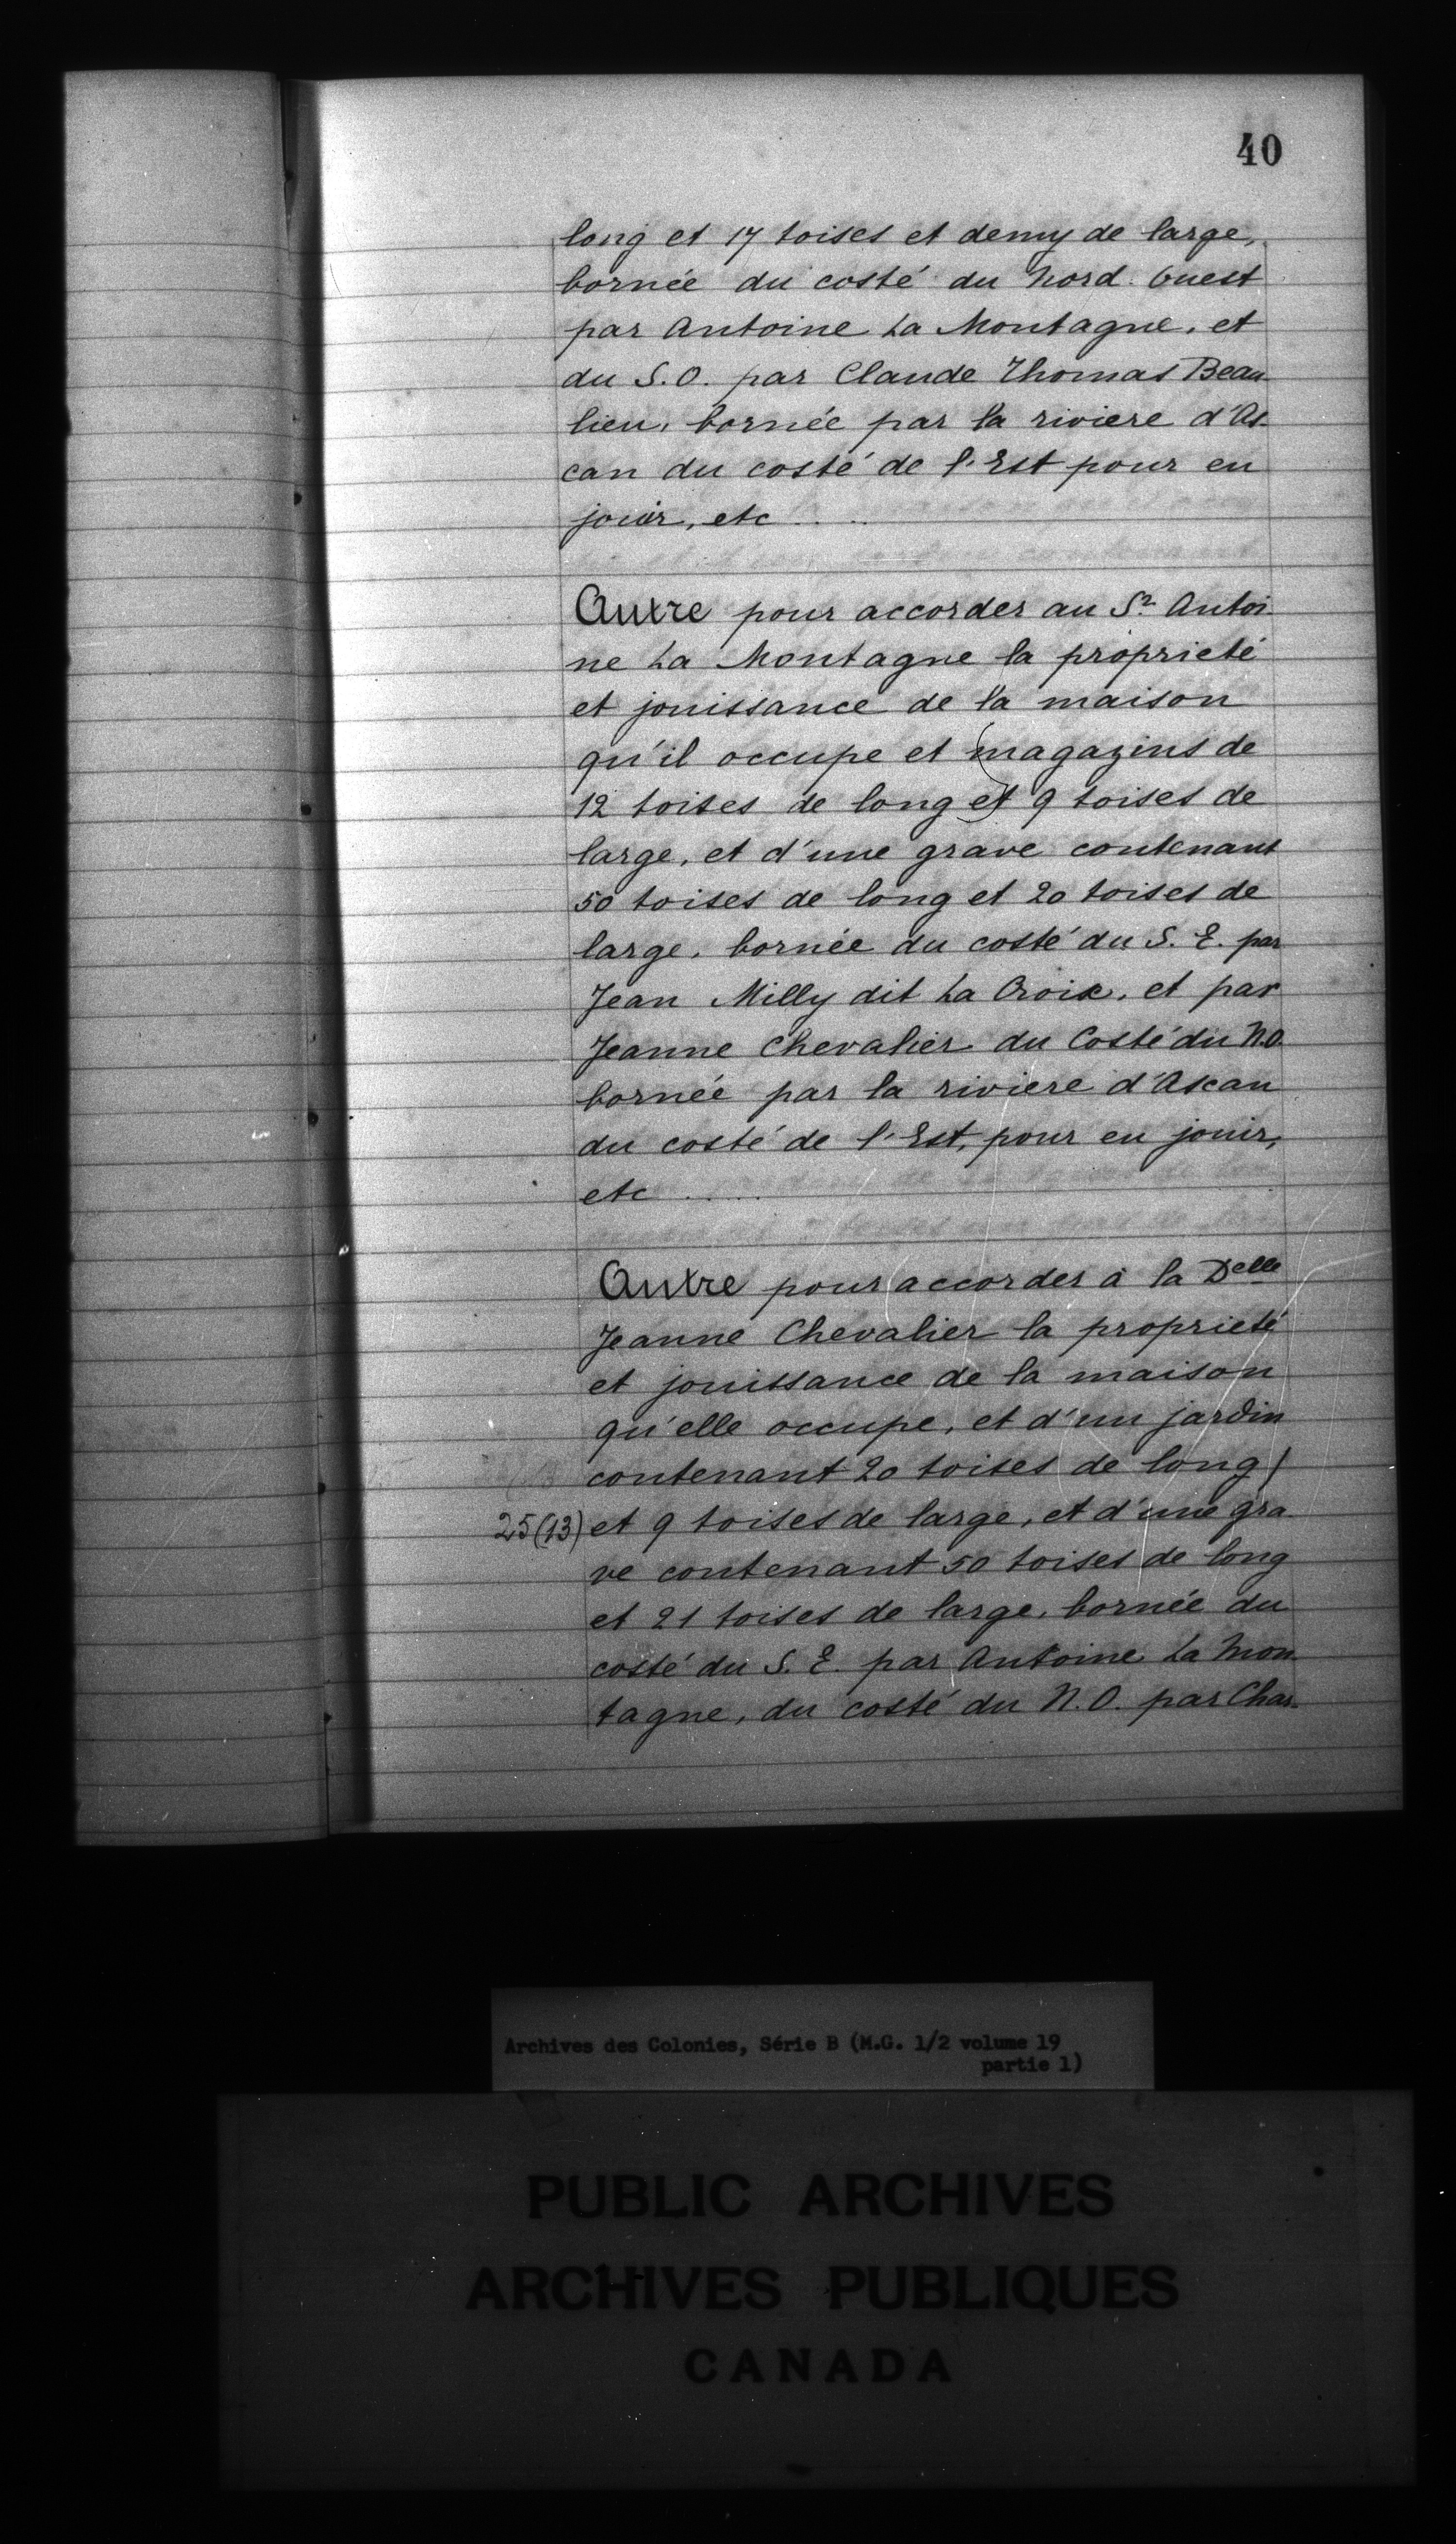 40
long et 17 toises et demy de large,
bornée du costé du Nord Ouest
par Antoine La Montagne, et
du S.O. par Claude Thomas Beau-
lieu, bornée par la riviere d'As-
can du costé de l'Est pour en
jouir, etc ....
Autre pour accorder au Sr Antoi
ne La Montagne la proprieté
et jouissance de la maison
qu'il occupe et magazins de
12 toises de long et 9 toises de
large, et d'une grave contenant
50 toises de long et 20 toises de
large, bornée du costé du S. E. par
Jean Milly dit La Croix, et par
Jeanne Chevalier du Costé du N.O.
bornée par la riviere d'Ascan
du costé de l'Est, pour en jouir,
etc .....
Autre pour accorder à la Delle
Jeanne Chevalier la proprieté
et jouissance de la maison
qu'elle occupe, et d'un jardin
contenant 20 toises de long /
25(13) et 9 toises de large, et d'une gra-
ve contenant 50 toises de long
et 21 toises de large, bornée du
costé du S. E. par Antoine La Mon-
tagne, du costé du N.O. par Char-
Archives des Colonies, Série B (M.G. 1/2 volume 19
partie 1)
PUBLIC ARCHIVES
ARCHIVES PUBLIQUES
CANADA